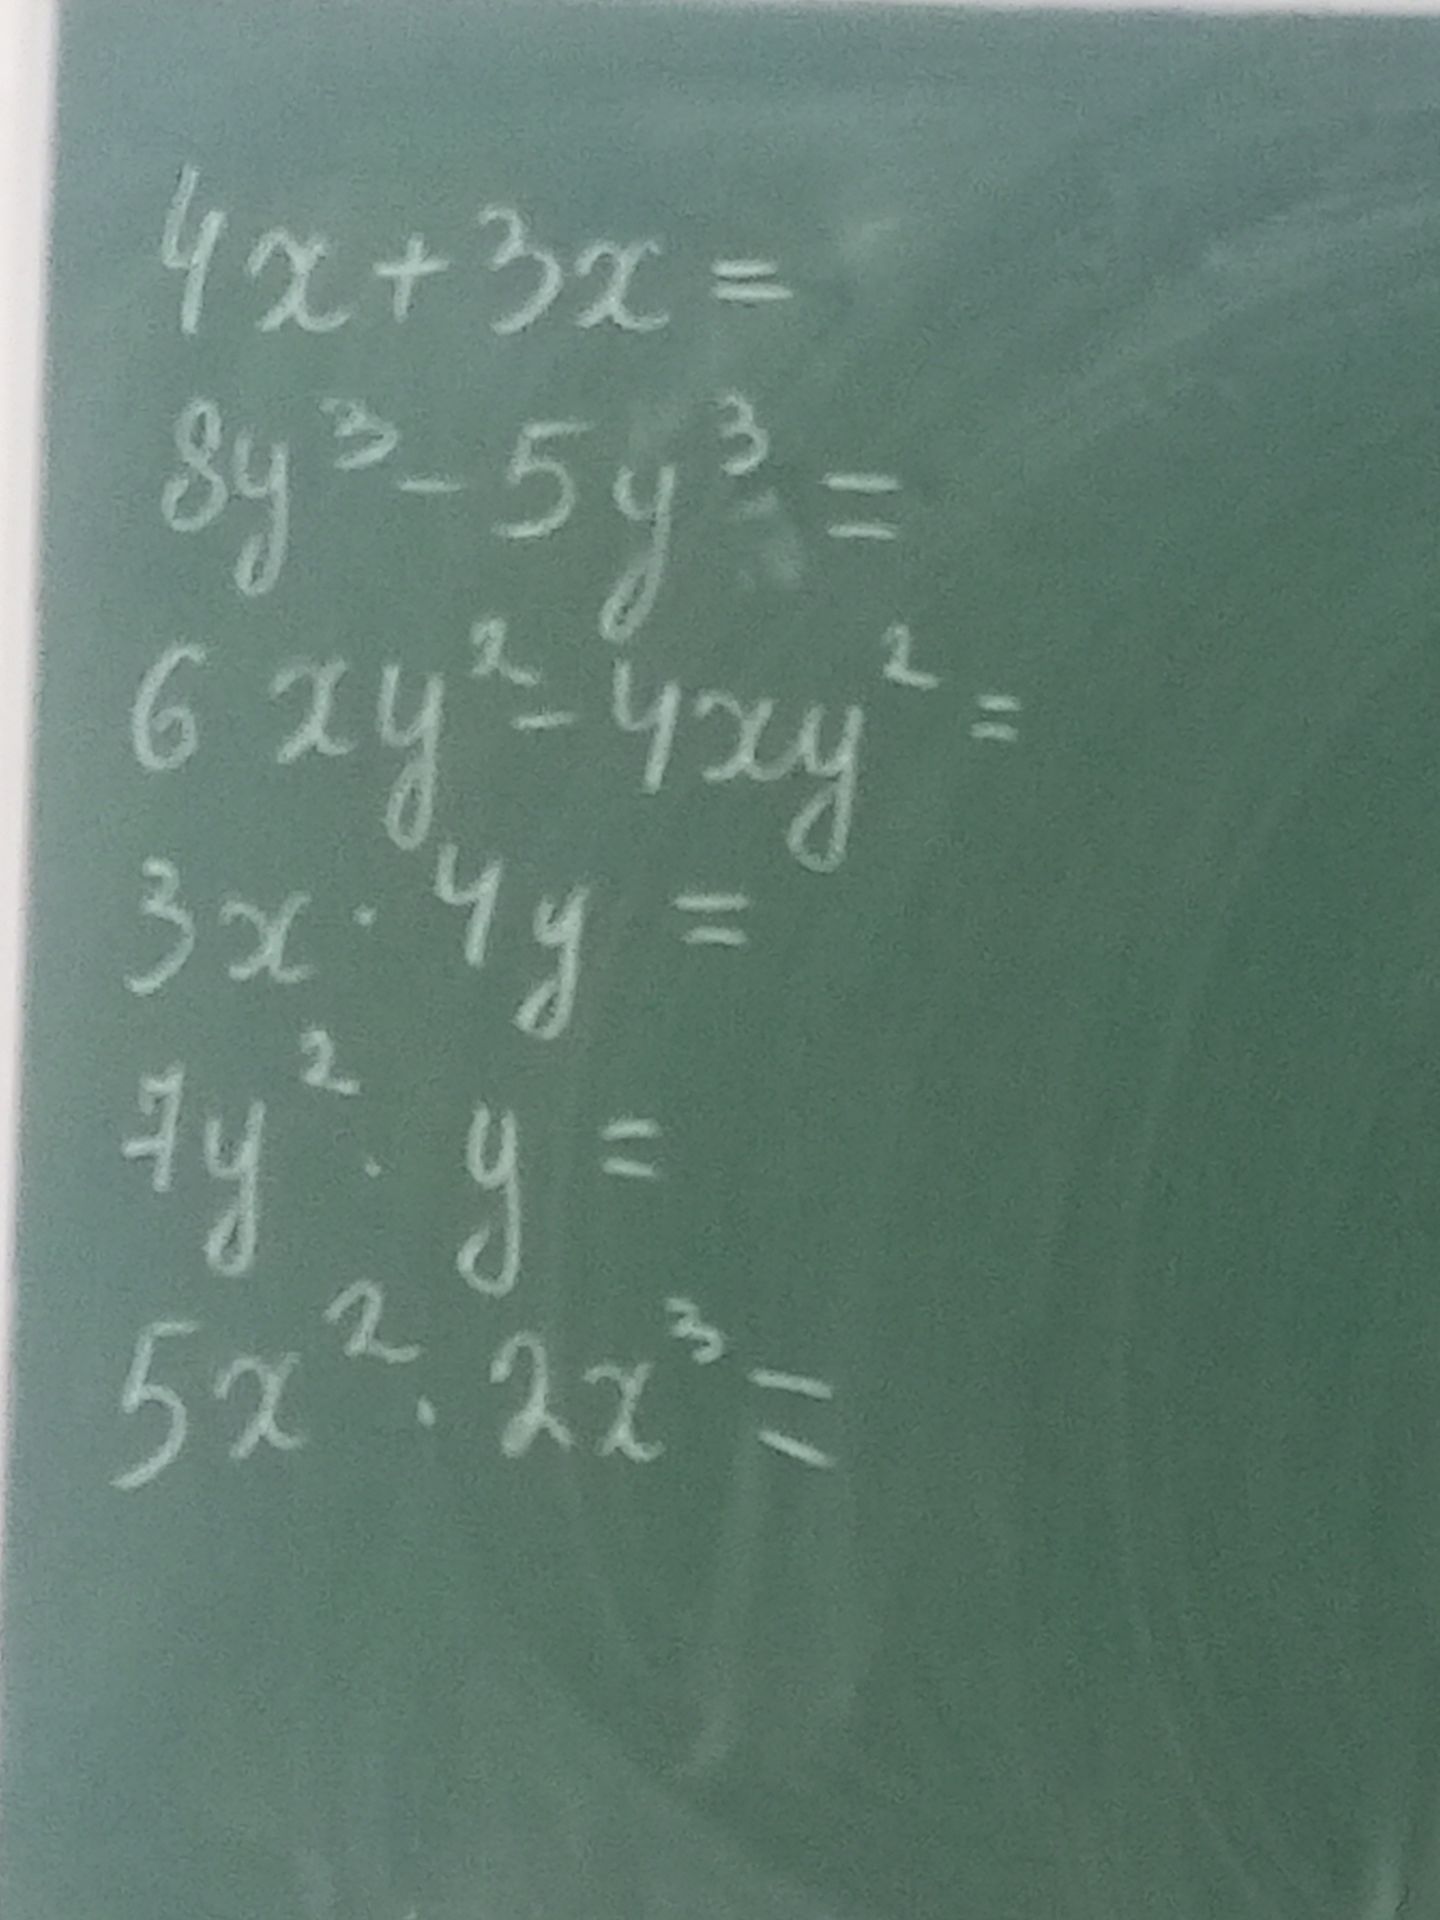 4x+3x=
8y³-5y³=
6xy²-4xy²=
3x·4y=
7y²·y=
5x²·2x³=